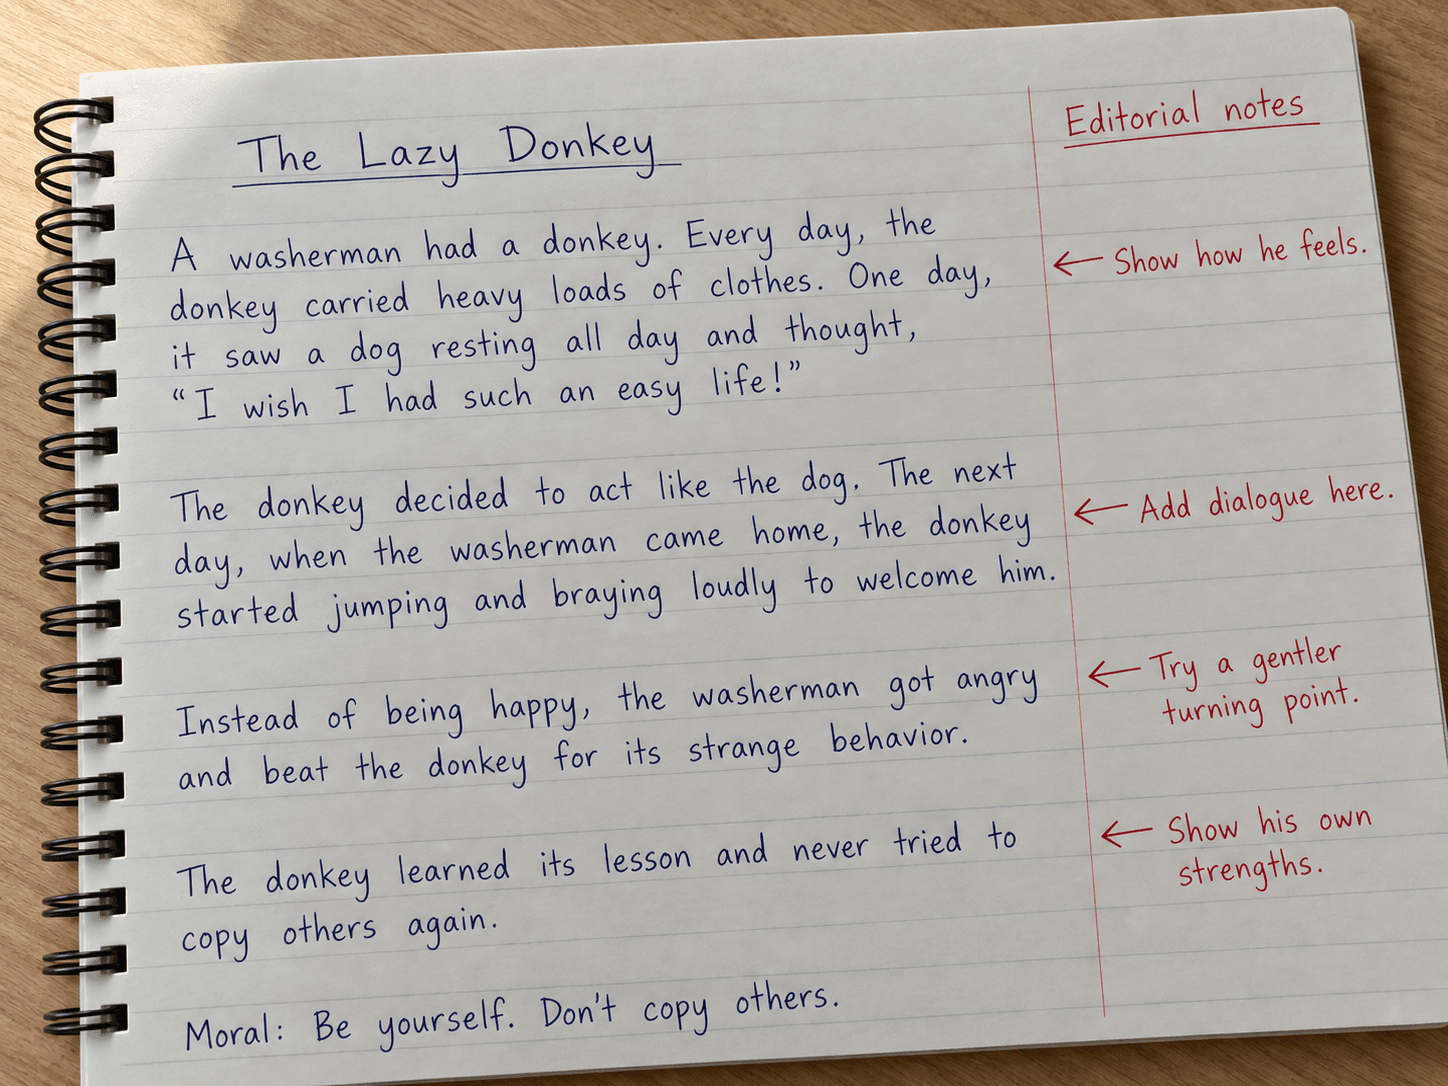 The Lazy Donkey
A washerman had a donkey. Every day, the
donkey carried heavy loads of clothes. One day,
it saw a dog resting all day and thought,
“I wish I had such an easy life!”
The donkey decided to act like the dog. The next
day, when the washerman came home, the donkey
started jumping and braying loudly to welcome him.
Instead of being happy, the washerman got angry
and beat the donkey for its strange behavior.
The donkey learned its lesson and never tried to
copy others again.
Moral: Be yourself. Don't copy others.
Editorial notes
← Show how he feels.
← Add dialogue here.
← Try a gentler
turning point.
← Show his own
strengths.